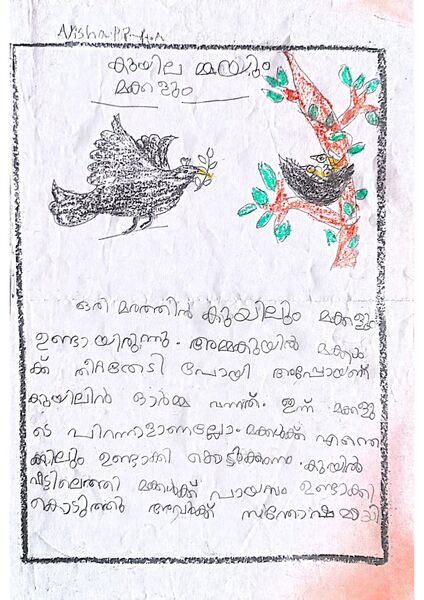 കുയില മ്മയും
മക്കളും
ഒരു മരത്തിൽ കുയിലും മക്കളും
ഉണ്ടായിരുന്നു. അമ്മകുയിൽ മക്കൾ
ക്ക് തീറ്റതേടി പോയി അപ്പോയാണ്
കുയിലിൻ ഓർമ്മ വന്നത്. ഇന്ന് മക്കളു
ടെ പിറന്നാളാണല്ലോ. മക്കൾക്ക് എന്തെ
ങ്കിലും ഉണ്ടാക്കി കൊടുക്കണം. കുയിൽ
വീട്ടിലെത്തി മക്കൾക്ക് പായസം ഉണ്ടാക്കി
കൊടുത്തു അവർക്ക് സന്തോഷമായി